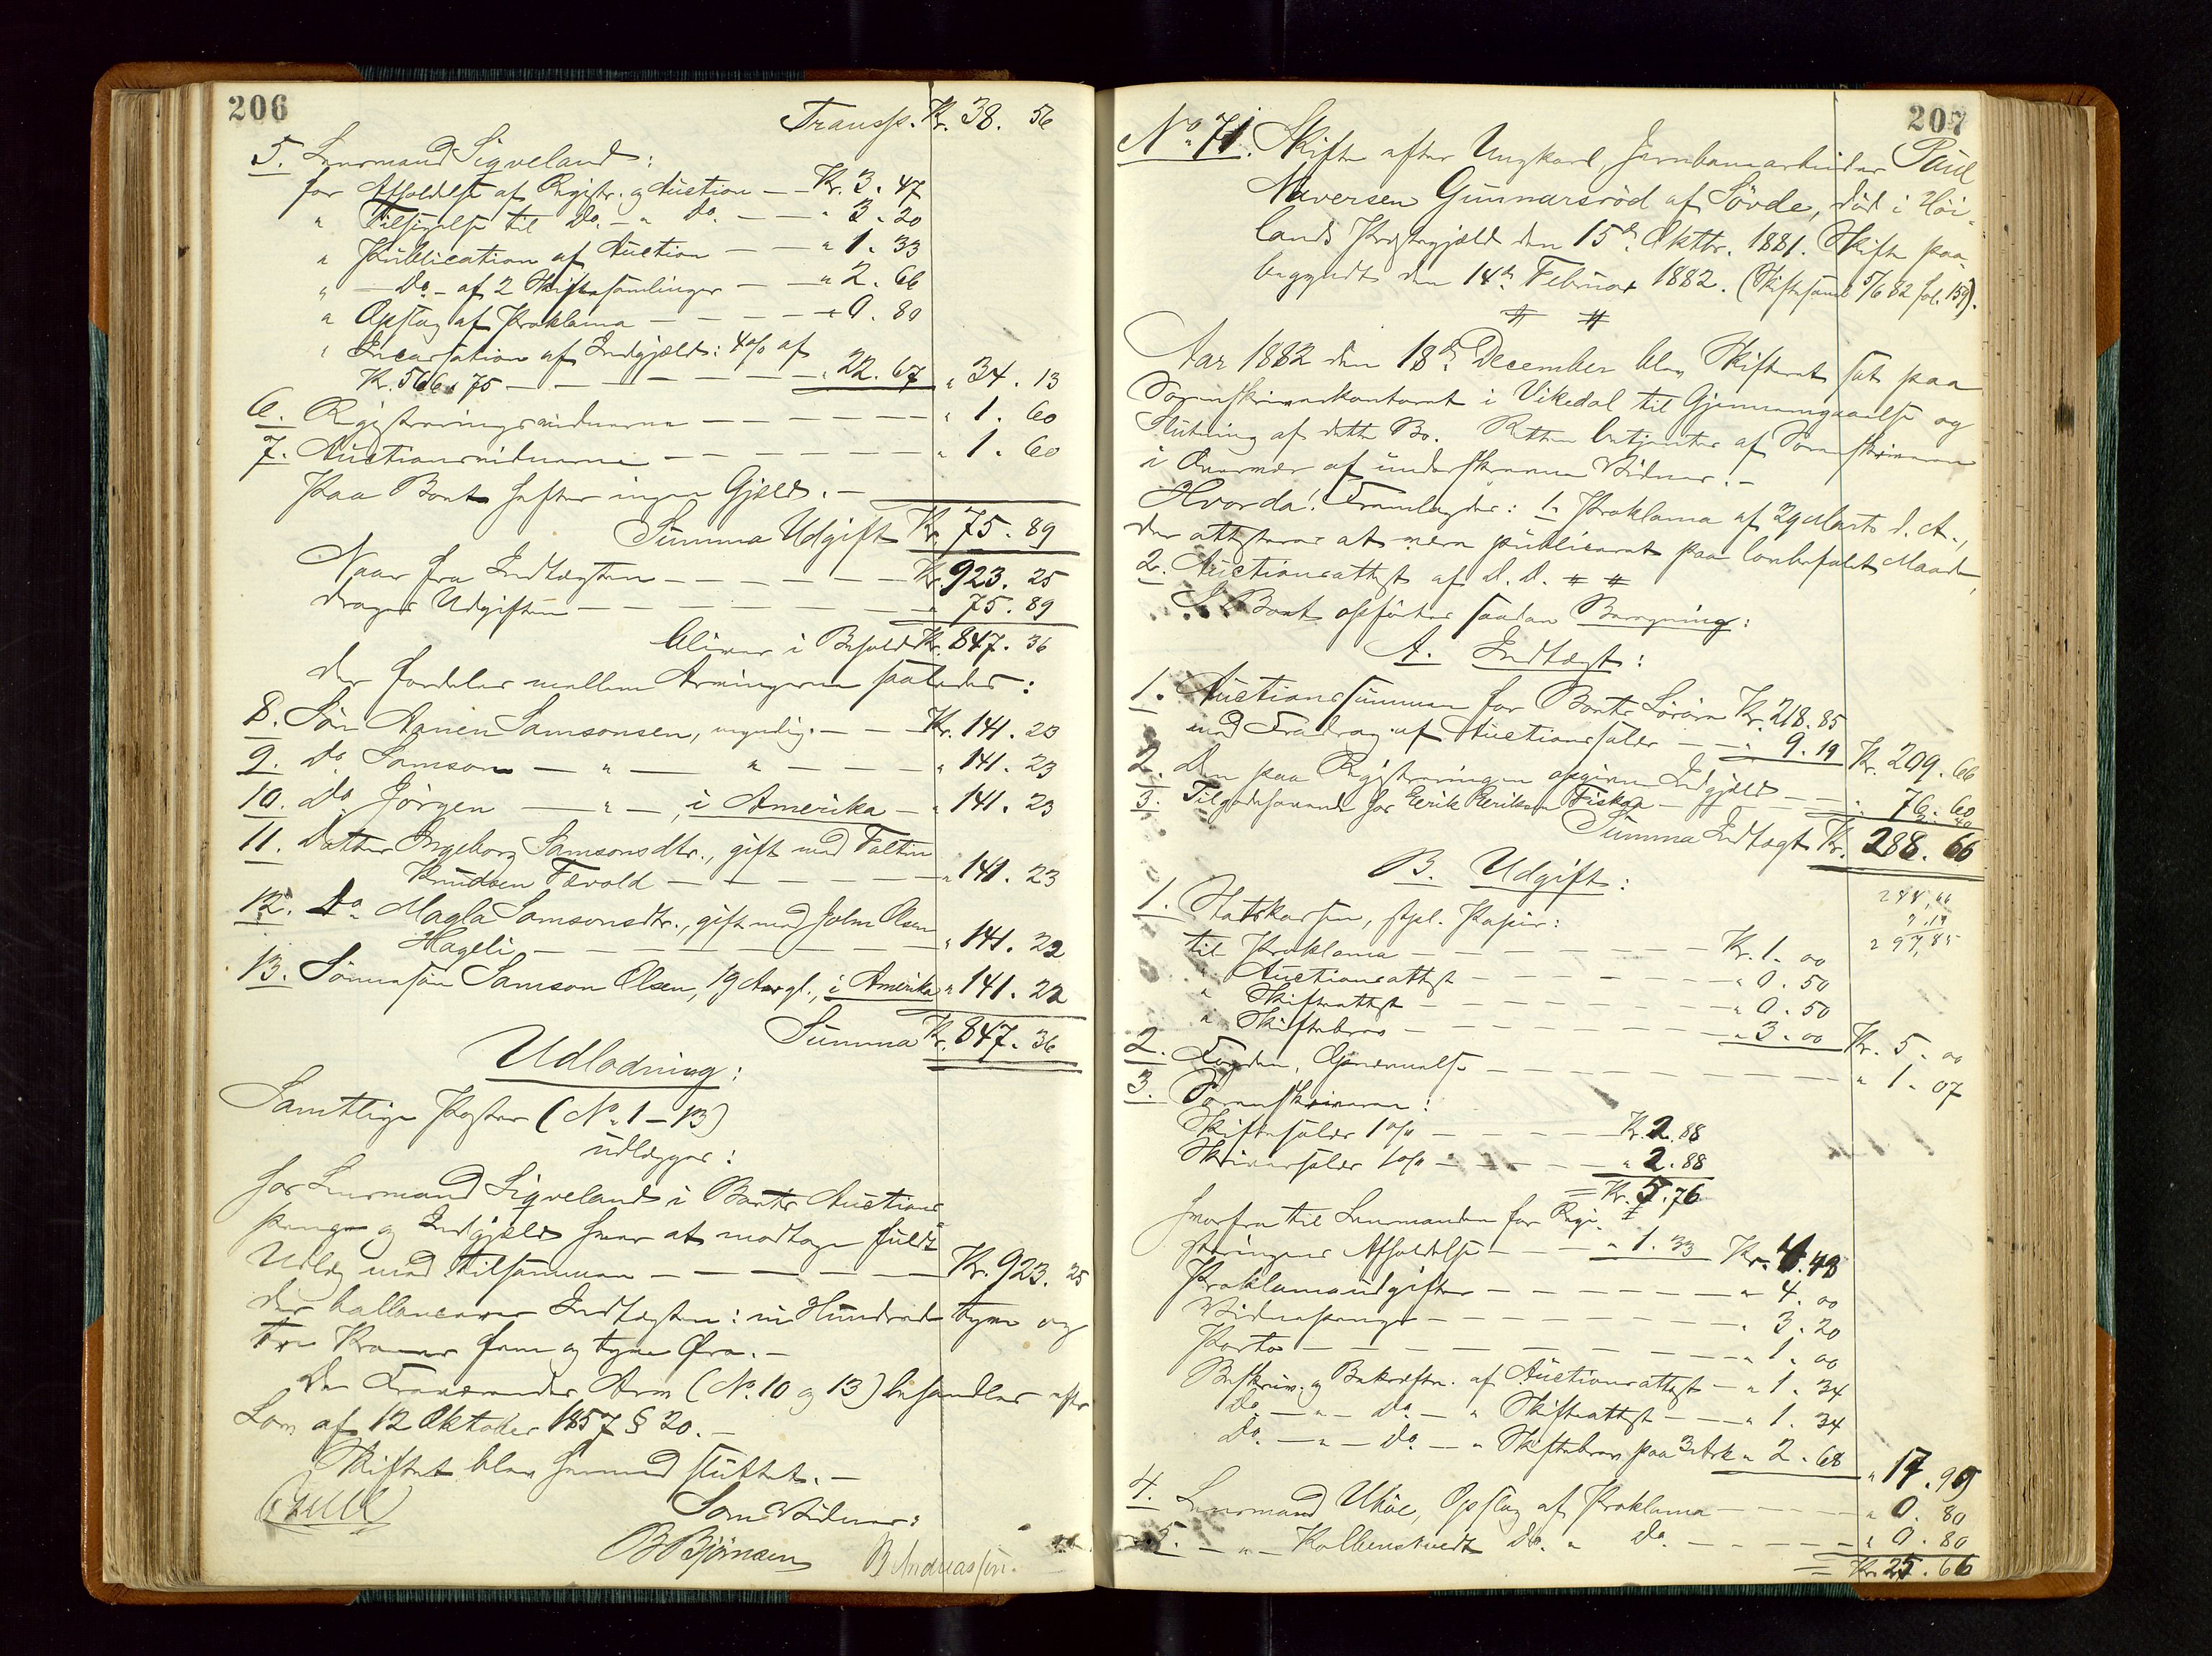 206
Transp. Kr. 38. 56
5. Lensmand Sigveland:
for Afholdelse af Registr. og Auction — Kr. 3. 47
" Tilsigelse til Do. — " Do. — — " 3. 20
" Publication af Auction — — " 1. 33
" — Do. — af 2 Skiftesamlinger — — " 2. 66
" Opslag af Proklama — — — — " 0. 80
" Incassation af Indgjæld: 4 % af
Kr. 566. 75 — — — — — " 22. 67 " 34. 13
6. Registreringsvidnerne — — — — — " 1. 60
7. Auctionsvidnerne — — — — — " 1. 60
Paa Boet hefter ingen Gjæld. —
Summa Udgift Kr. 75. 89
Naar fra Indtægten — — — — — Kr. 923. 25
drages Udgiften — — — — — " 75. 89
bliver i Behold Kr. 847. 36
der fordeles mellem Arvingerne saaledes:
8. Søn Aanen Samsonsen, myndig. — — Kr. 141. 23
9. do Samson — " — " — — — " 141. 23
10. do. Jörgen — " —, i Amerika — " 141. 23
11. Datter Ingeborg Samsonsdtr., gift med Faltin
Knudsen Tævold — — — — — " 141. 23
12. Do. Magla Samsonsdtr., gift med John Olsen
Hageli — — — — — " 141. 22
13. Sønnesøn Samson Olsen, 19 Aar gl., i Amerika " 141. 22
Summa Kr. 847. 36
Udlodning:
Samtlige Poster (No. 1 — 13)
udlægges:
hos Lensmand Sigveland i Boets Auctions-
penge og Indgjæld hver at modtage fuldt
Udlæg med tilsammen — — — — — Kr. 923. 25
der ballancerer Indtægten: ni Hundrede tyve og
tre Kroner fem og tyve Øre. —
De Fraværendes Arv (No. 10 og 13) behandles efter
Lov af 12 Oktober 1857 § 20. —
Skiftet blev hermed sluttet. —
Som Vidner:
B Bjørnsen B Andreassen.
207
No. 71. Skifte efter Ungkarl, Jernbanearbeider Paul
Iversen Gunnarsrød af Søvde, død i Høi-
lands Præstegjeld den 15de Oktbr. 1881. Skifte paa-
begyndt den 14de Februar 1882. (Skiftesaml. 5/6 82 fol. 159).
Aar 1882 den 18de December blev Skifteret sat paa
Sorenskriverkontoret i Vikedal til Gjennemgaaelse og
Slutning af dette Bo. Retten betjentes af Sorenskriveren
i Overvær af underskrevne Vidner. —
Hvorda! Fremlagdes: 1. Proklama af 29 Marts d. A.,
der attesteres at være publiceret paa lovbefalet Maade,
2. Auctionsattest af d. D.
I Boet opførtes saadan Beregning:
A. Indtægt:
1. Auctionssummen for Boets Løsøre Kr. 218. 85
med Fradrag af Auctionssalær — — " 9. 19 Kr. 209. 66
2. Den paa Registreringen opgivne Indgjæld — — " 76. 60
3. Tilgodehavende hos Eerik Eeriksen Fiskaa — — " 2. 40
Summa Indtægt Kr. 288. 66
B. Udgift:
288,66
9.19
297,85
1. Statskassen, stpl. Papir:
til Proklama — — — — — Kr. 1. 00
" Auctionsattest — — — — " 0. 50
" Skifteattest — — — — — " 0. 50
" Skiftebrev — — — — — " 3. 00 Kr. 5. 00
2. Fogden, Opnævnelse — — — — — " 1. 07
3. Sorenskriveren:
Skiftesalær 1 % — — — — Kr. 2. 88
Skriversalær 1 % — — — — " 2. 88
= Kr. 5. 76
hvorfra til Lensmanden for Regi-
streringens Afholdelse — — " 1. 33 Kr. 4. 43
Proklamaudgifter — — — — — " 4. 00
Vidnepenge — — — — — " 3. 20
Porto — — — — — " 1. 00
Beskriv. og Bekræftn. af Auctionsattest — " 1. 34
do. — " — do. — " Skifteattest — — " 1. 34
do. — " — do. — " Skiftebrev paa 3 Ark " 2. 68 " 17. 99
4. Lensmand Uhøe, Opslag af Proklama — — — " 0. 80
5. — " — Kolbenstvedt do. " do. — — — — " 0. 80
= Kr. 25. 66